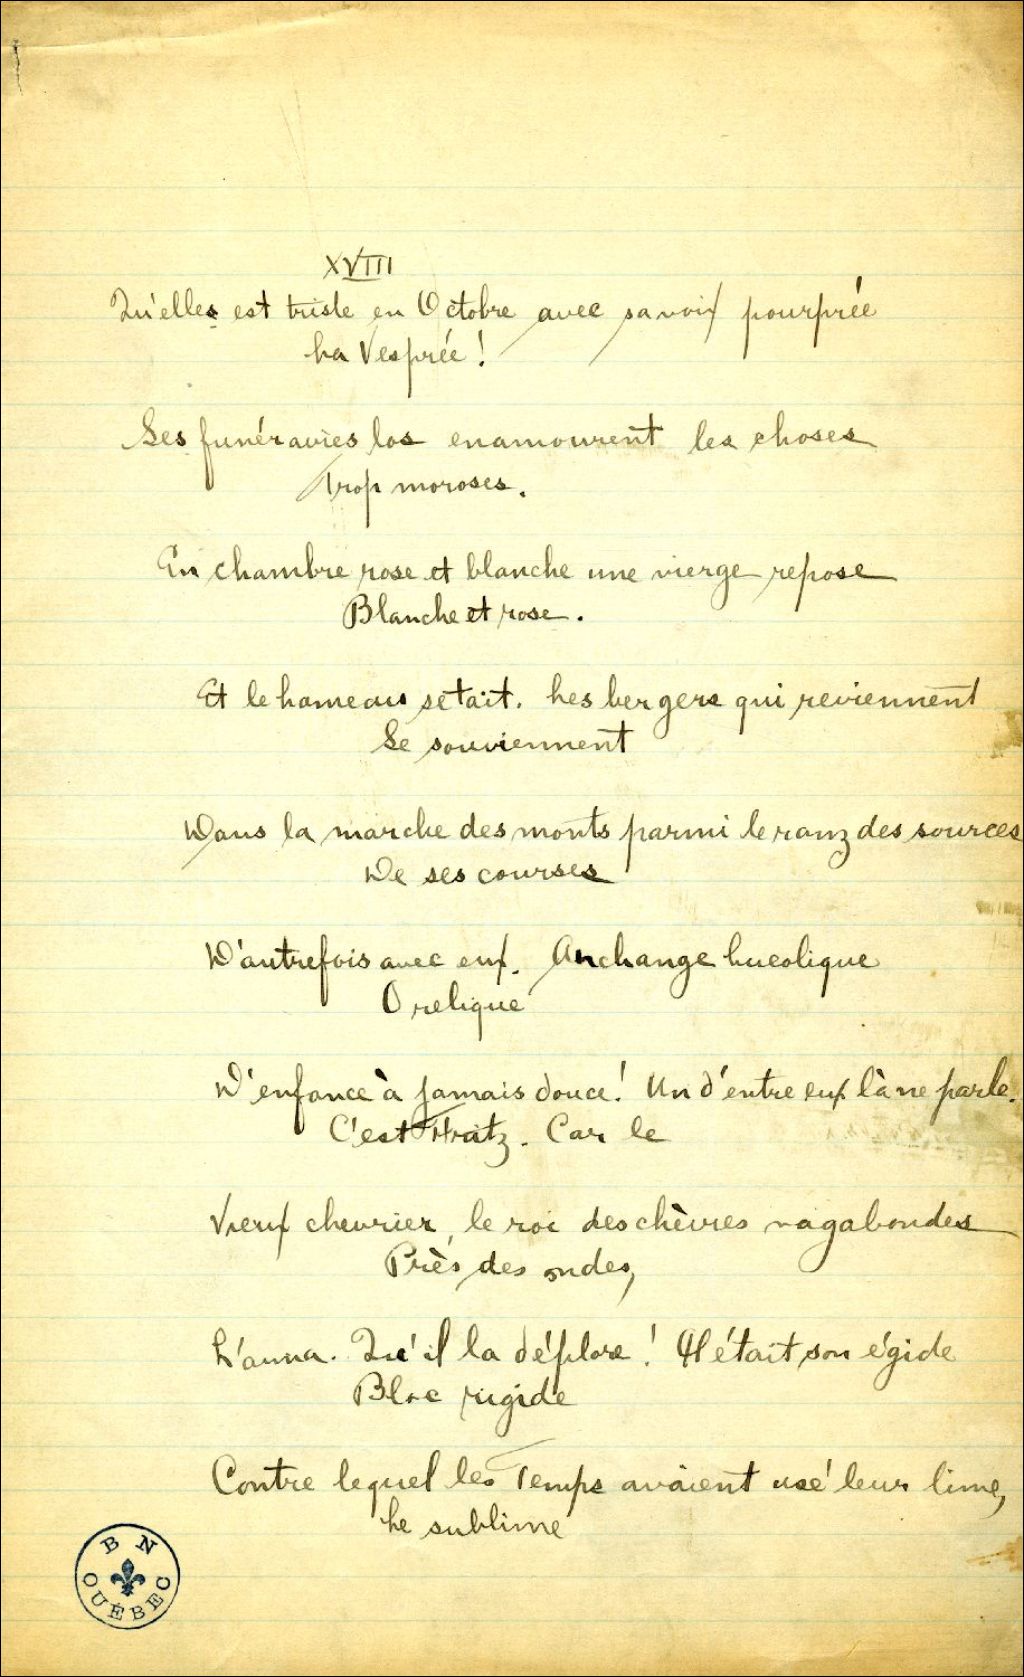 XVIII
Qu'elles est triste en Octobre avec sa voix pourprée
La Vesprée !
Ses funéraires los enamourent les choses
Trop moroses.
En chambre rose et blanche une vierge repose
Blanche et rose.
Et le hameau se tait. Les bergers qui reviennent
Se souviennent
Dans la marche des monts parmi le ranz des sources
De ses courses
D'autrefois avec eux. Archange bucolique
O relique
D'enfance à jamais douce ! Un d'entre eux là ne parle.
C'est Fritz. Car le
Vieux chevrier, le roi des chèvres vagabondes
Près des ondes,
L'aima. Qu'il la déplore ! Il était son égide
Bloc rigide
Contre lequel les Temps avaient usé leur lime,
Le sublime
BN
QUÉBEC